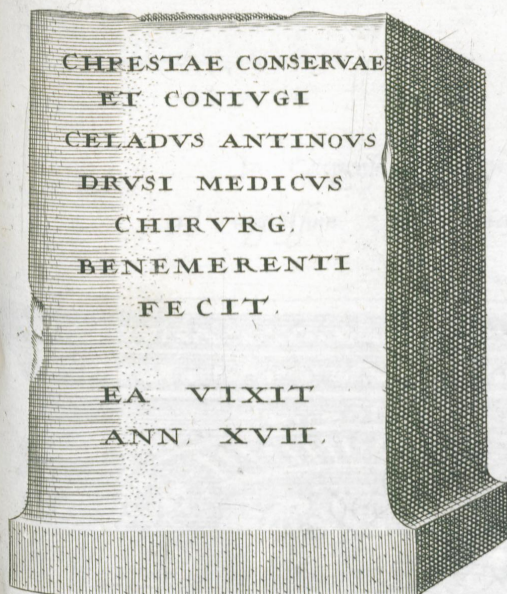 CHRESTAE CONSERVAE
ET CONIVGI
CELADVS ANTINOVS
DRVSI MEDICVS
CHIRVRG.
BENEMERENTI
FECIT.
EA VIXIT
ANN. XVII.